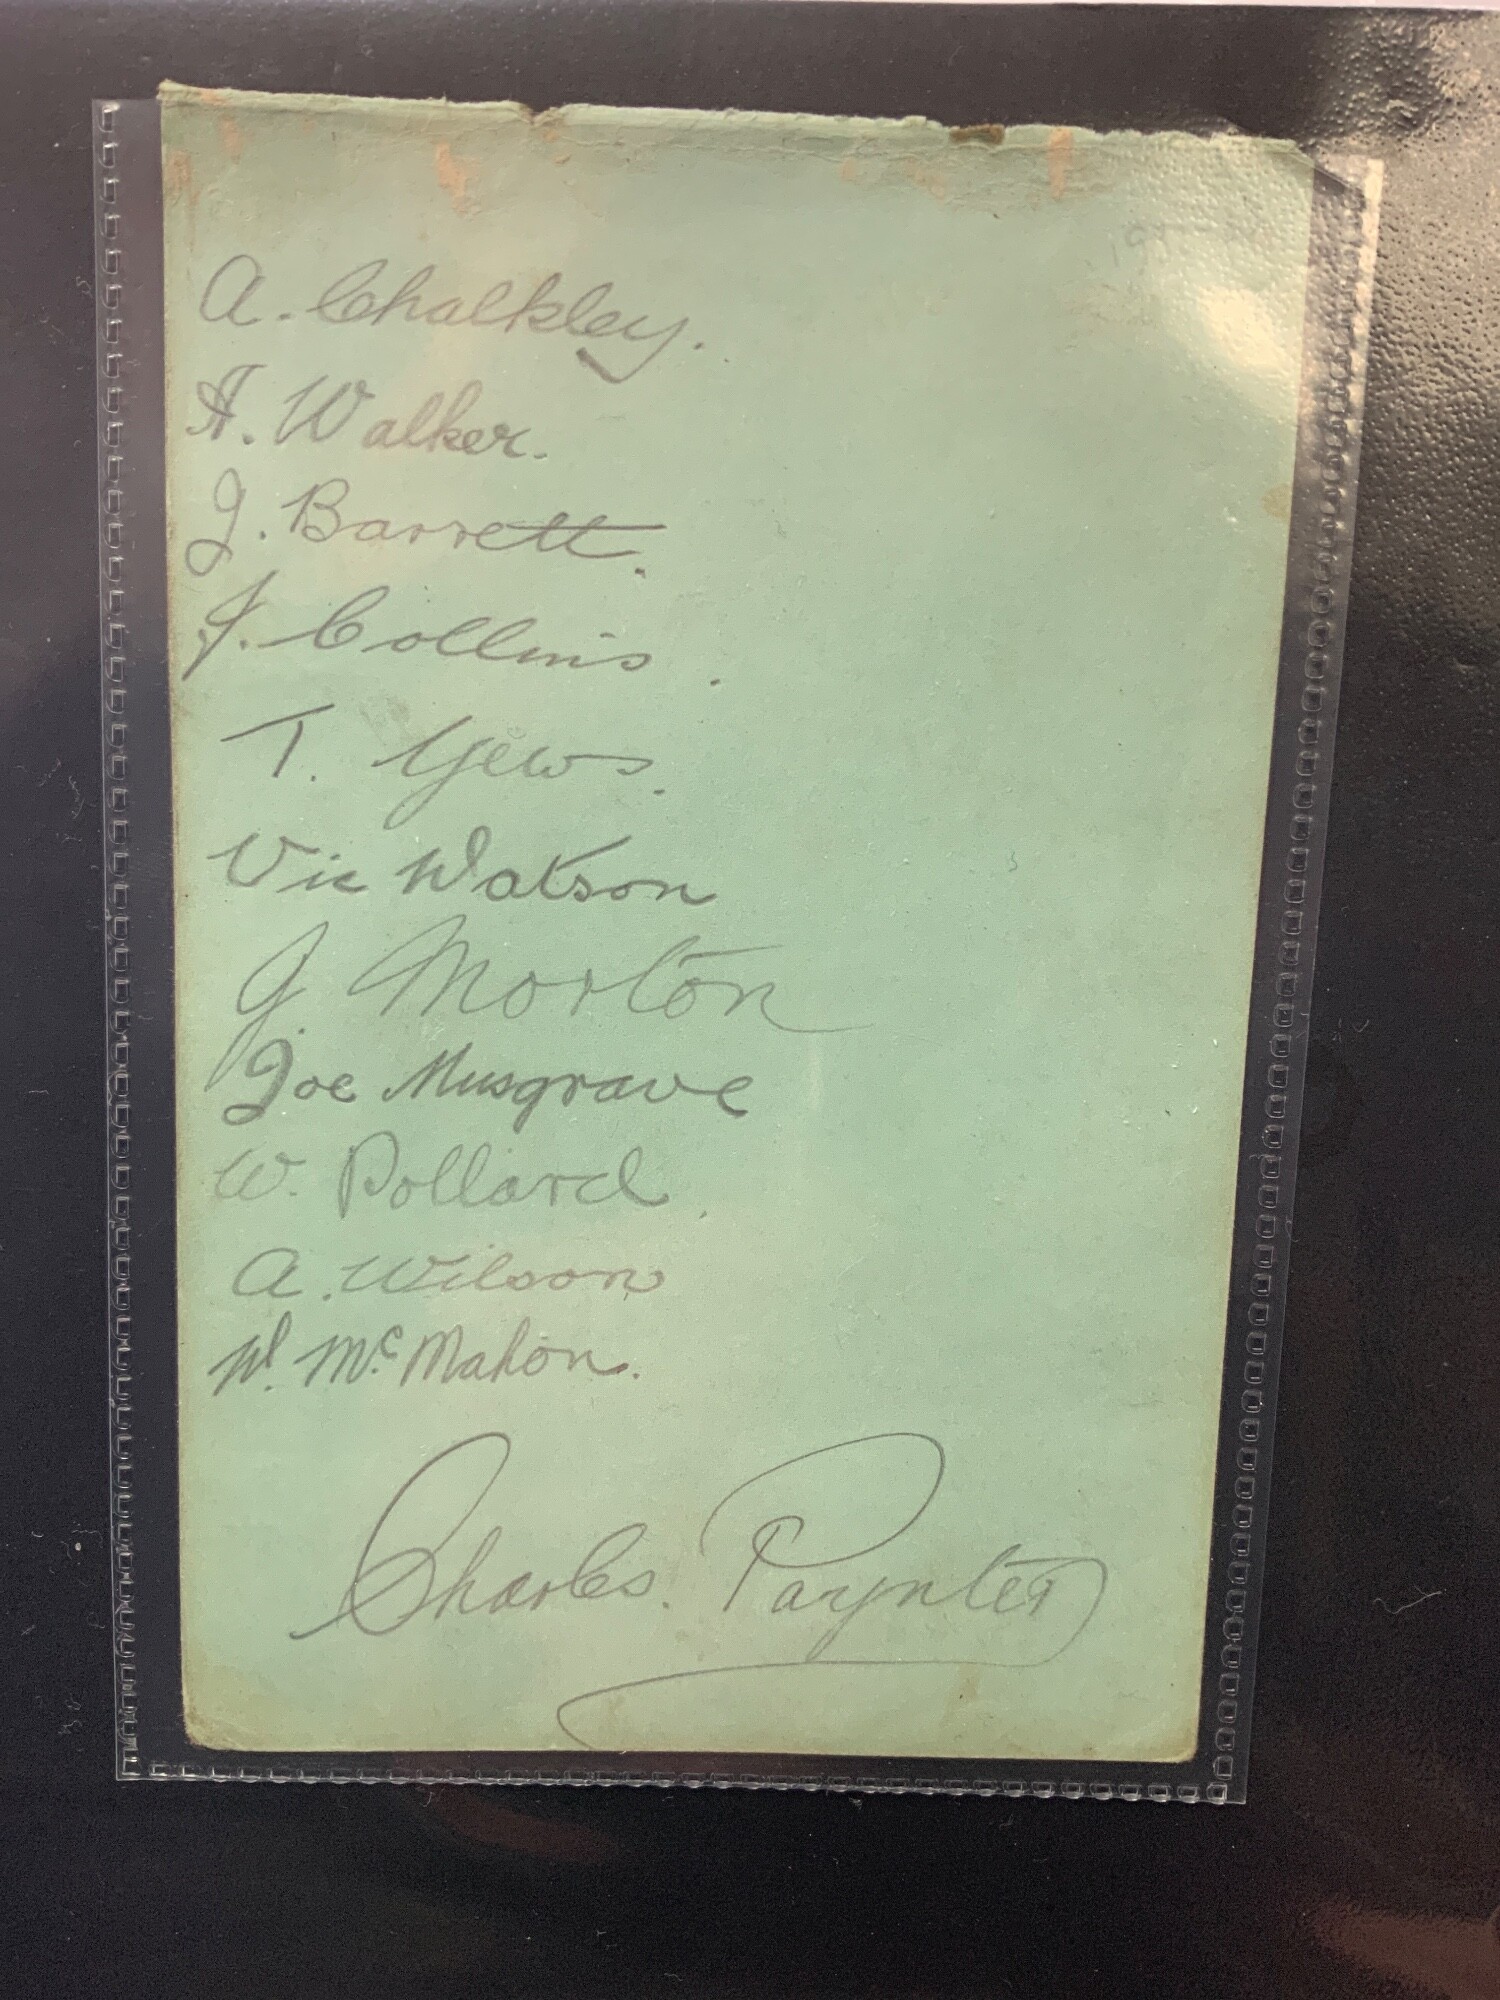 A. Chalkley.
A. Walker.
J. Barrett.
J. Collins.
T. Yews.
Vic Watson
J. Morton
Joe Musgrave
W. Pollard.
A. Wilson
W. McMahon.
Charles. Paynter